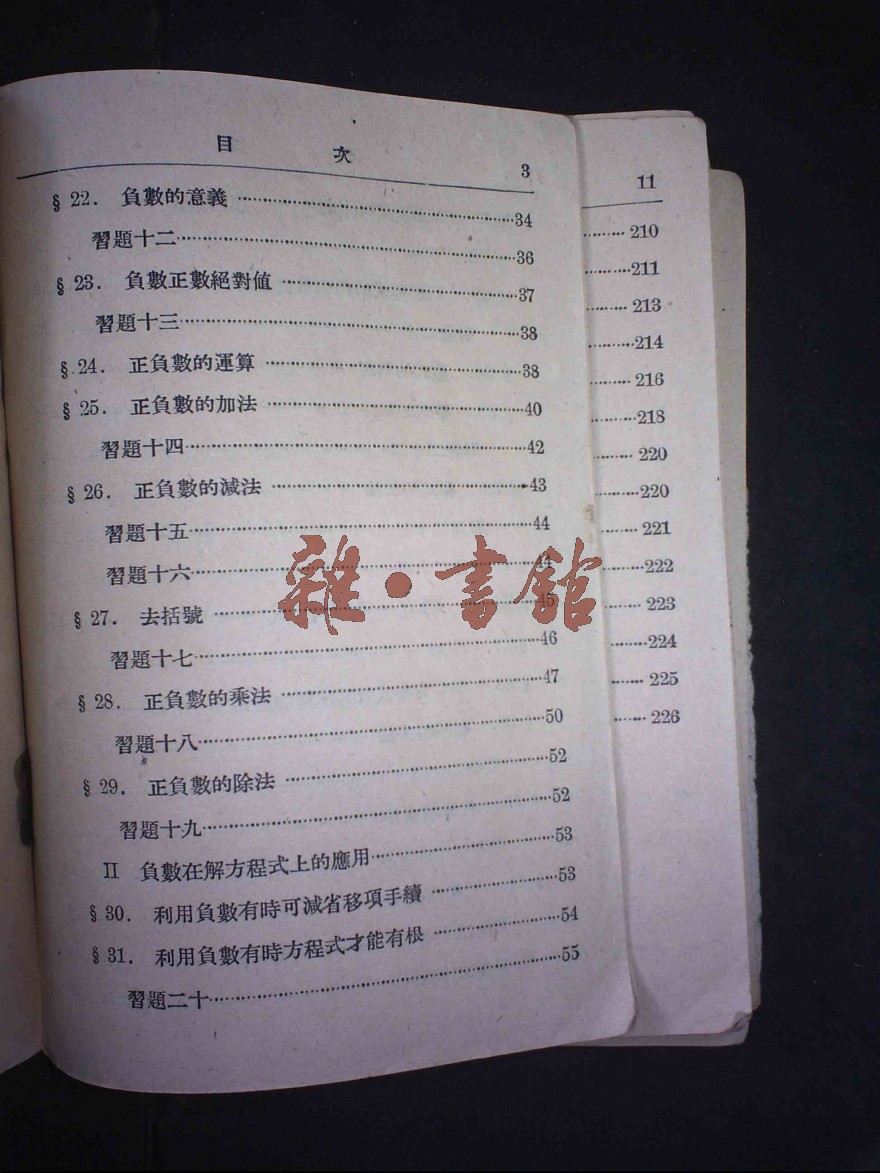 目 次 3
§ 22. 負數的意義 ……34
習題十二……36
§ 23. 負數正數絕對值 ……37
習題十三……38
§ 24. 正負數的運算 ……38
§ 25. 正負數的加法 ……40
習題十四……42
§ 26. 正負數的減法 ……43
習題十五……44
習題十六……44
§ 27. 去括號 ……45
習題十七……46
§ 28. 正負數的乘法 ……47
習題十八……50
§ 29. 正負數的除法 ……52
習題十九……52
II 負數在解方程式上的應用……53
§ 30. 利用負數有時可減省移項手續 ……53
§ 31. 利用負數有時方程式才能有根 ……54
習題二十……55
11
……210
……211
……213
……214
……216
……218
……220
……220
……221
……222
……223
……224
……225
……226
雜·書館